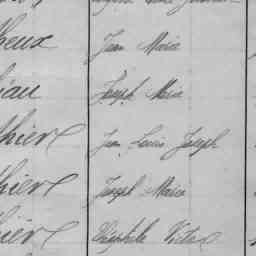 heux Jean Marie
iau Joseph Marie
hier Jean Louis Joseph
hier Joseph Marie
hier Théophile Victor